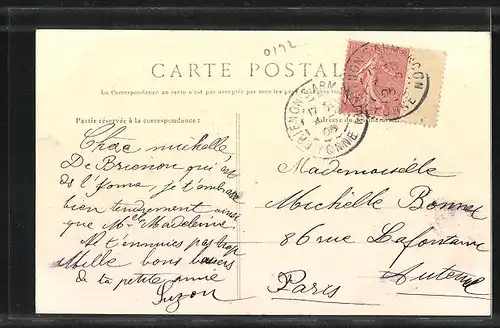 0192
CARTE POSTALE
La correspondance au recto n'est pas acceptée par tous les pays étrangers
Partie réservée à la correspondance
BRIENON S ARMANÇON
YONNE
Chère Michelle
De Brienon qui est
ds l'Yonne, je t'embrasse
bien tendrement ainsi
que Melle Madeleine.
t'ennuies pas trop
Mille bons baisers
de ta petite amie
Suzon
Mademoiselle
Michelle Bonnet
86 rue Lafontaine
Auteuil
Paris